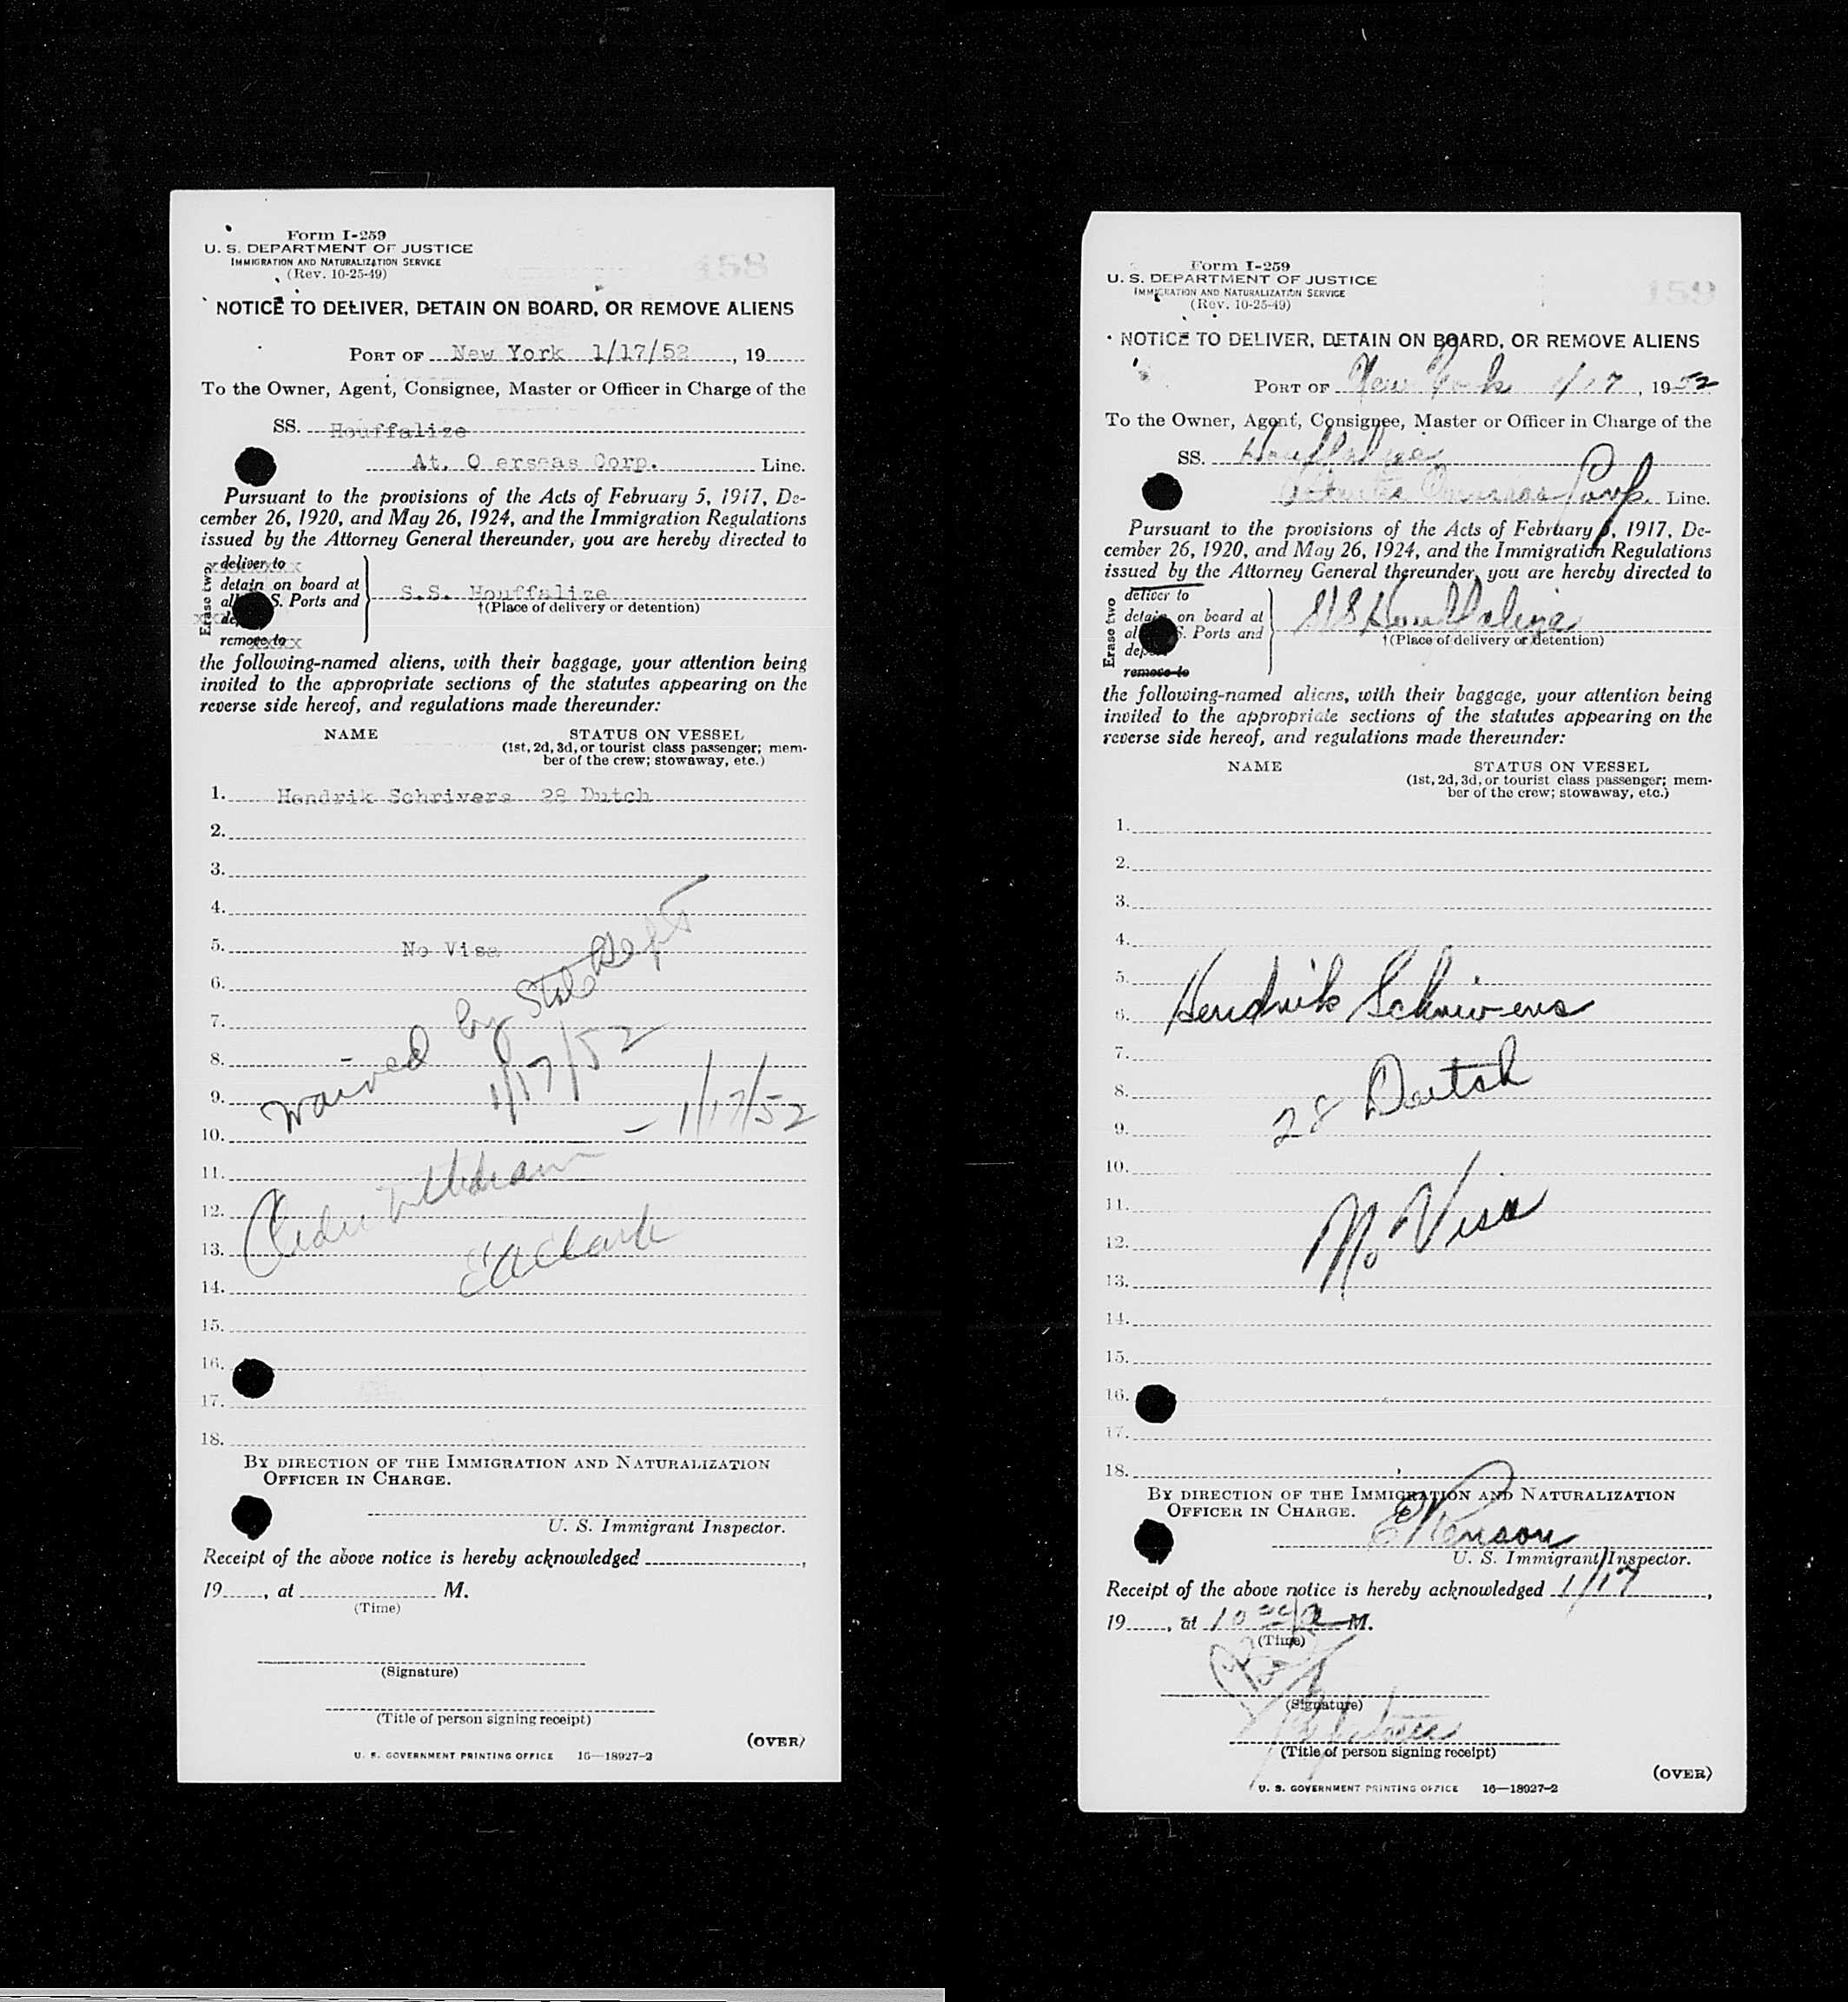 Form I-259
U. S. DEPARTMENT OF JUSTICE
IMMIGRATION AND NATURALIZATION SERVICE
(Rev. 10-25-49)
158
NOTICE TO DELIVER, DETAIN ON BOARD, OR REMOVE ALIENS
PORT OF New York 1/17/52, 19
To the Owner, Agent, Consignee, Master or Officer in Charge of the
SS. Houffalize
At. O erseas Corp. Line.
Pursuant to the provisions of the Acts of February 5, 1917, De-
cember 26, 1920, and May 26, 1924, and the Immigration Regulations
issued by the Attorney General thereunder, you are hereby directed to
Erase two
deliver to
detain on board at
S. Ports and
remove to
S.S. Houffalize
†(Place of delivery or detention)
the following-named aliens, with their baggage, your attention being
invited to the appropriate sections of the statutes appearing on the
reverse side hereof, and regulations made thereunder:
NAME STATUS ON VESSEL
(1st, 2d, 3d, or tourist class passenger; mem-
ber of the crew; stowaway, etc.)
1. Hendrik Schrivers 28 Dutch
2.
3.
4.
5. No Visa
6.
7.
8.
9.
10.
11.
12.
13.
14.
15.
16.
17.
18.
Waived by State Dept
1/17/52
- 1/17/52
Order withdrawn
EA Clark
BY DIRECTION OF THE IMMIGRATION AND NATURALIZATION
OFFICER IN CHARGE.
U. S. Immigrant Inspector.
Receipt of the above notice is hereby acknowledged ,
19 , at M.
(Time)
(Signature)
(Title of person signing receipt)
(OVER)
U. S. GOVERNMENT PRINTING OFFICE 16—18927-2
Form I-259
U. S. DEPARTMENT OF JUSTICE
IMMIGRATION AND NATURALIZATION SERVICE
(Rev. 10-25-49)
159
NOTICE TO DELIVER, DETAIN ON BOARD, OR REMOVE ALIENS
PORT OF New York 1/17, 1952
To the Owner, Agent, Consignee, Master or Officer in Charge of the
SS. Houffalize
Atlantic Overseas Corp. Line.
Pursuant to the provisions of the Acts of February 5, 1917, De-
cember 26, 1920, and May 26, 1924, and the Immigration Regulations
issued by the Attorney General thereunder, you are hereby directed to
Erase two
deliver to
detain on board at
S. Ports and
remove to
S/S Houffalize
†(Place of delivery or detention)
the following-named aliens, with their baggage, your attention being
invited to the appropriate sections of the statutes appearing on the
reverse side hereof, and regulations made thereunder:
NAME STATUS ON VESSEL
(1st, 2d, 3d, or tourist class passenger; mem-
ber of the crew; stowaway, etc.)
1.
2.
3.
4.
5.
6. Hendrik Schrivers
7.
8. 28 Dutch
9.
10.
11.
12. No Visa
13.
14.
15.
16.
17.
18.
BY DIRECTION OF THE IMMIGRATION AND NATURALIZATION
OFFICER IN CHARGE.
U. S. Immigrant Inspector.
Receipt of the above notice is hereby acknowledged 1/17,
19 , at 10 A M.
(Time)
(Signature)
(Title of person signing receipt)
(OVER)
U. S. GOVERNMENT PRINTING OFFICE 16—18927-2